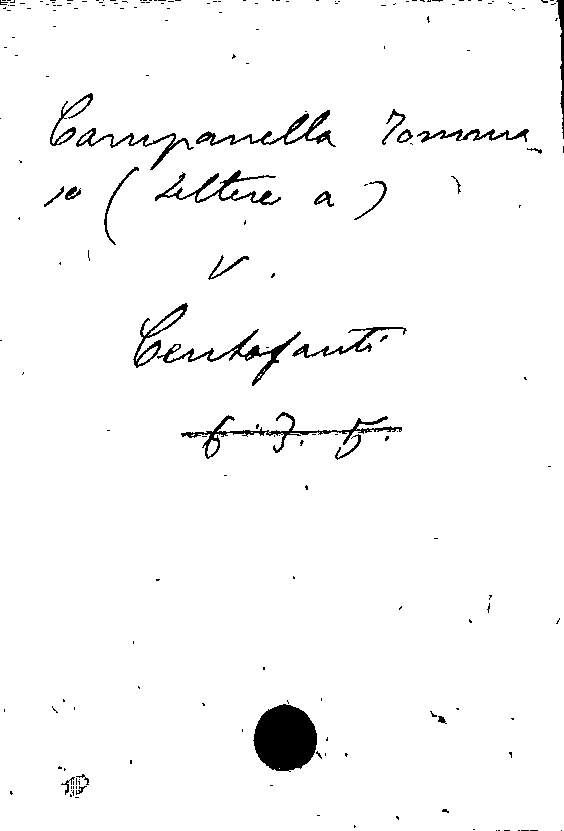 Campanella Tomma_
so (Lettere a)
V.
Centofanti
6 . 3. 5.